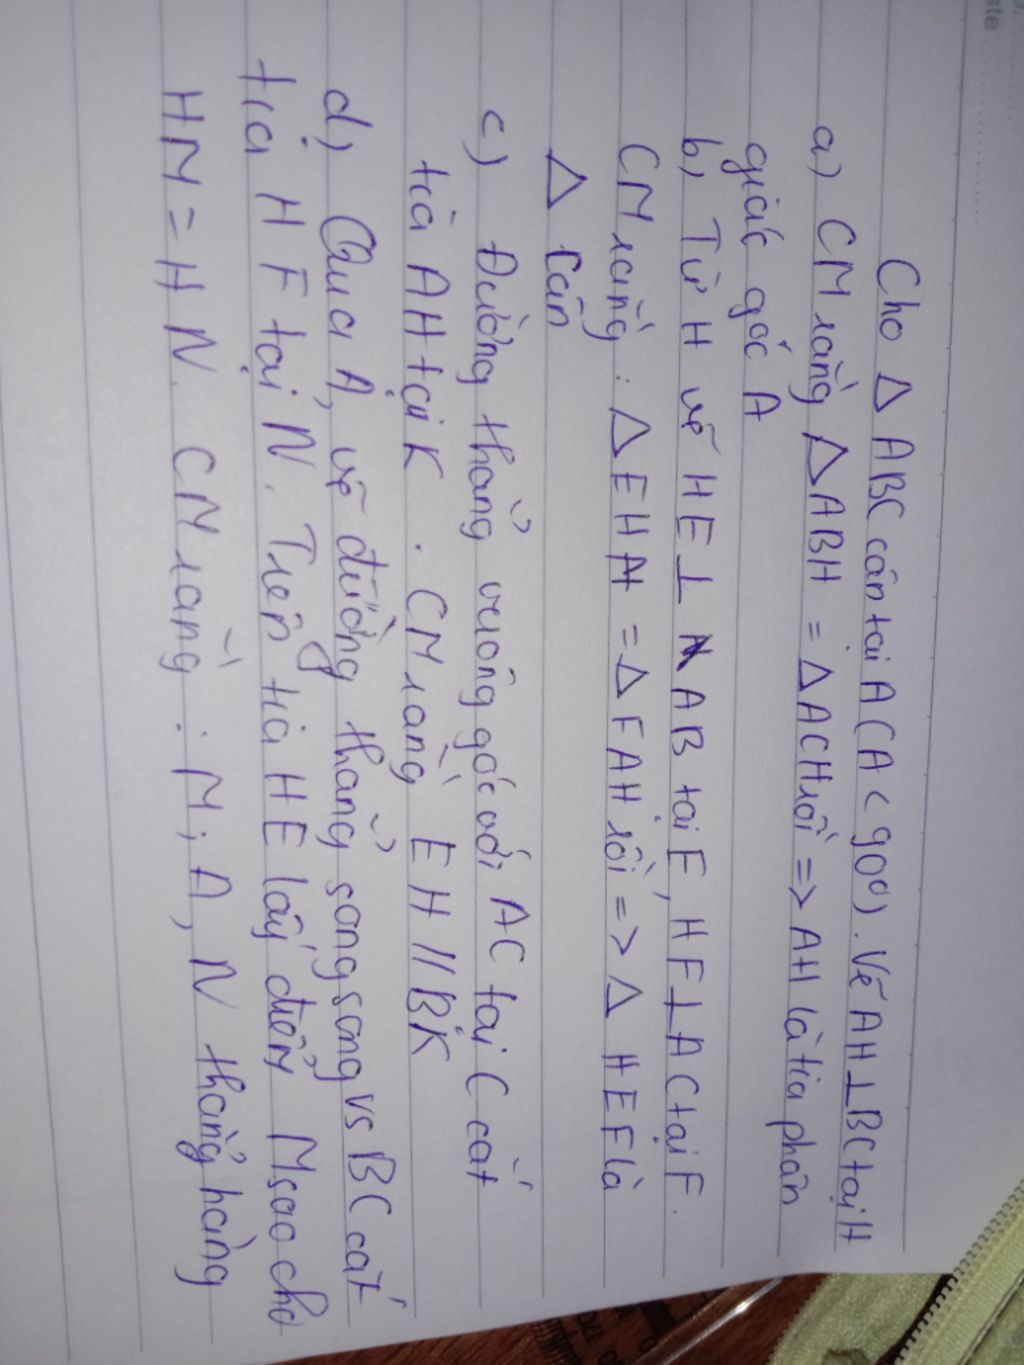 Cho Δ ABC cân tại A (A < 90⁰). Vẽ AH⊥BC tại H
a) CM rằng ΔABH = ΔACH rồi => AH là tia phân
giác góc A
b) Từ H vẽ HE⊥ AB tại E, HF⊥AC tại F.
CM rằng : ΔEHA = ΔFAH rồi => Δ HEF là
Δ cân
c) Đường thẳng vuông góc với AC tại C cắt
tia AH tại K . CM rằng EH // BK
d) Qua A, vẽ đường thẳng song song vs BC cắt
tia HF tại N. Trên tia HE lấy điểm M sao cho
HM = HN. CM rằng : M; A, N thẳng hàng